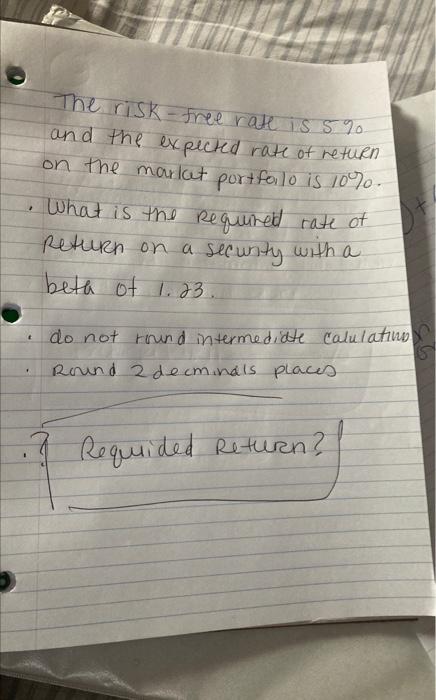 The risk-free rate is 5%
and the expected rate of return
on the markat portfoilo is 10%.
. What is the Required rate of
Return on a security with a
beta of 1.23.
. do not round intermediate
. Round 2 decminals places
. ? Requided Return?